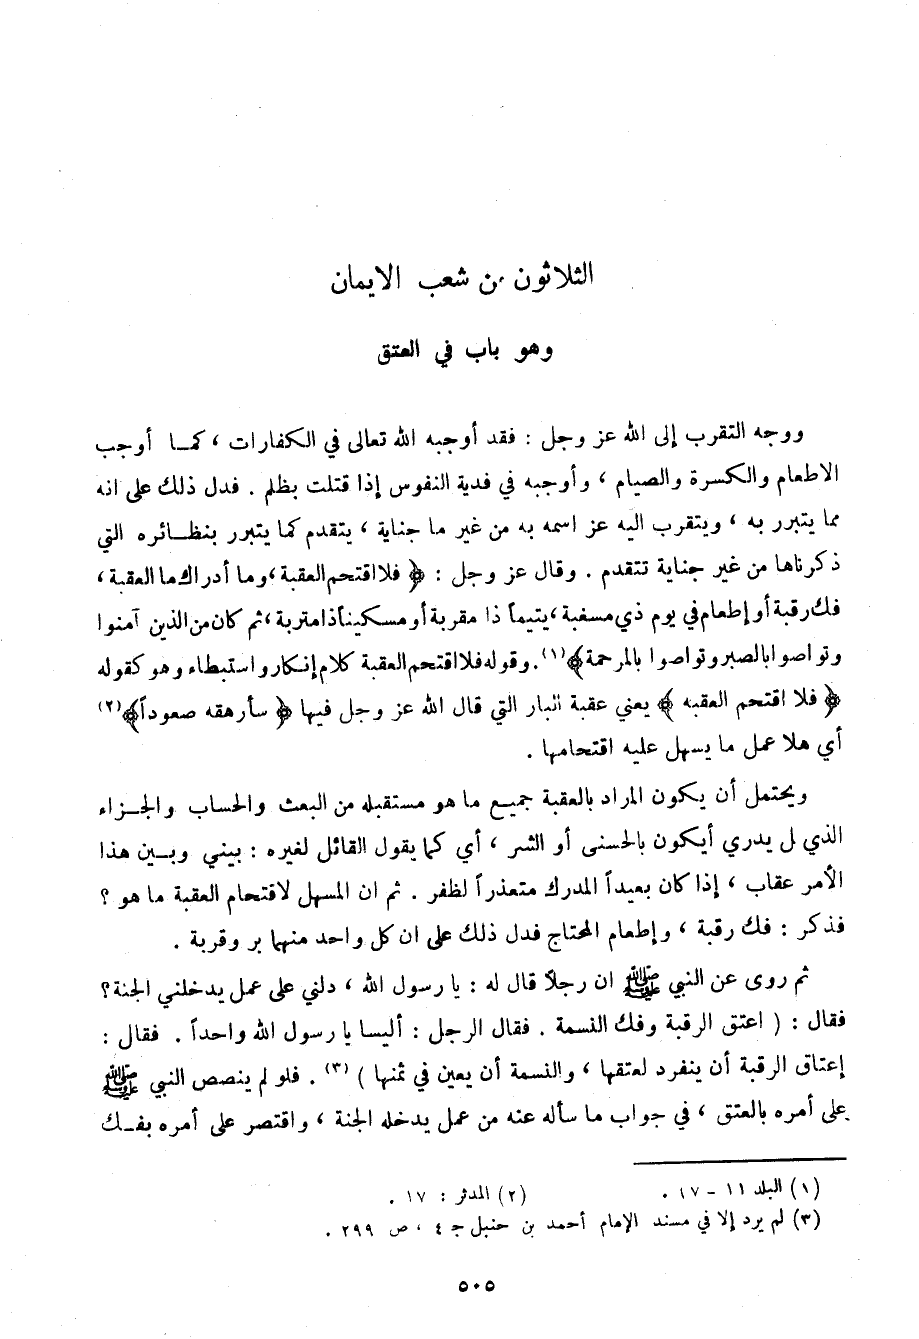 الثلاثون من شعب الايمان
وهو باب في العتق
ووجه التقرب إلى الله عز وجل : فقد أوجبه الله تعالى في الكفارات ، كمـا أوجب
الاطعام والكسرة والصيام ، وأوجبه في فدية النفوس إذا قتلت بظلم . فدل ذلك على انه
مما يتبرر به ، ويتقرب اليه عز اسمه به من غير ما جناية ، يتقدم كما يتبرر بنظـائره التي
ذكرناها من غير جناية تتقدم . وقال عز وجل : ﴿ فلا اقتحم العقبة ، وما أدراك ما العقبة ،
فك رقبة أو إطعام في يوم ذي مسغبة ، يتيماً ذا مقربة أو مسكيناً ذا متربة ، ثم كان من الذين آمنوا
وتواصوا بالصبر وتواصوا بالمرحمة ﴾ (١) . وقوله فلا اقتحم العقبة كلام إنكار واستبطاء وهو كقوله
﴿ فلا اقتحم العقبه ﴾ يعني عقبة النار التي قال الله عز وجل فيها ﴿ سأرهقه صعوداً ﴾ (٢)
أي هلا عمل ما يسهل عليه اقتحامها .
ويحتمل أن يكون المراد بالعقبة جميع ما هو مستقبله من البعث والحساب والجـزاء
الذي ل يدري أيكون بالحسنى أو الشر ، أي كما يقول القائل لغيره : بيني وبـين هذا
الأمر عقاب ، إذا كان بعيداً المدرك متعذراً لظفر . ثم ان المسهل لاقتحام العقبة ما هو ؟
فذكر : فك رقبة ، وإطعام المحتاج فدل ذلك على ان كل واحد منهما بر وقربة .
ثم روى عن النبي ﷺ ان رجلاً قال له : يا رسول الله ، دلني على عمل يدخلني الجنة ؟
فقال : ( اعتق الرقبة وفك النسمة . فقال الرجل : أليسا يا رسول الله واحداً . فقال :
إعتاق الرقبة أن ينفرد لعتقها ، والنسمة أن يعين في ثمنها ) (٣) . فلو لم ينصص النبي ﷺ
على أمره بالعتق ، في جواب ما سأله عنه من عمل يدخله الجنة ، واقتصر على أمره بفـك
(١) البلد ١١ - ١٧ . (٢) المدثر : ١٧ .
(٣) لم يرد إلا في مسند الإمام أحمد بن حنبل جـ ٤ ، ص ٢٩٩ .
٥٠٥